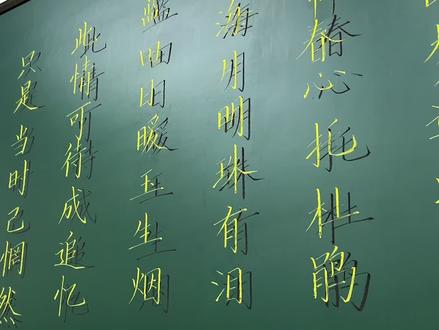 春心托杜鹃
海月明珠有泪
蓝田日暖玉生烟
此情可待成追忆
只是当时已惘然